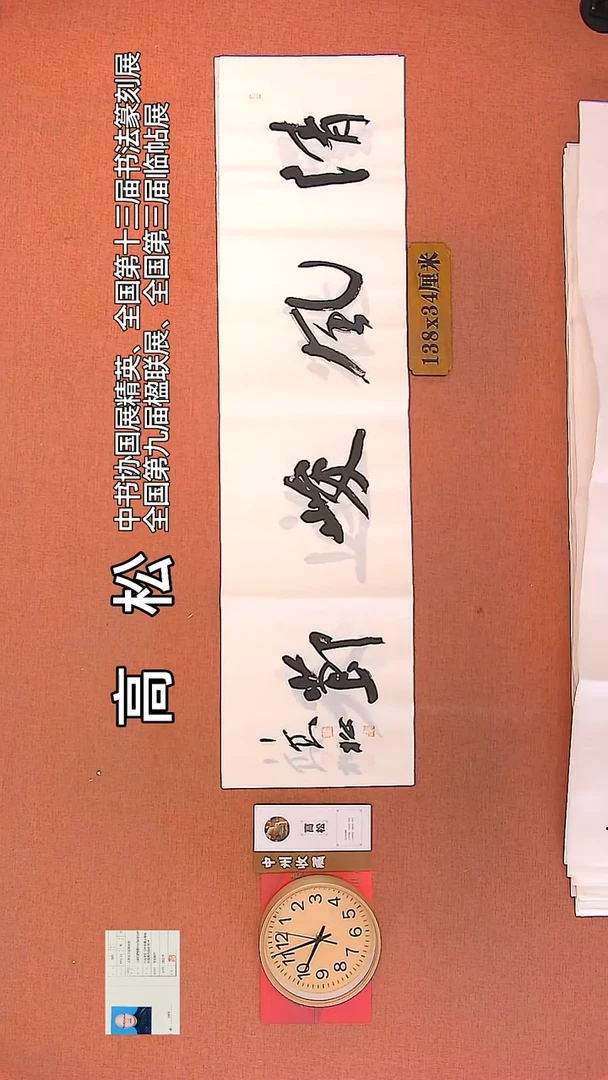 高 松
中书协国展精英、全国第十三届书法篆刻展
全国第九届楹联展、全国第三届临帖展
清風峻節
高松
138x34厘米
高松
中州收藏
12
1
2
3
4
5
6
7
8
9
10
11